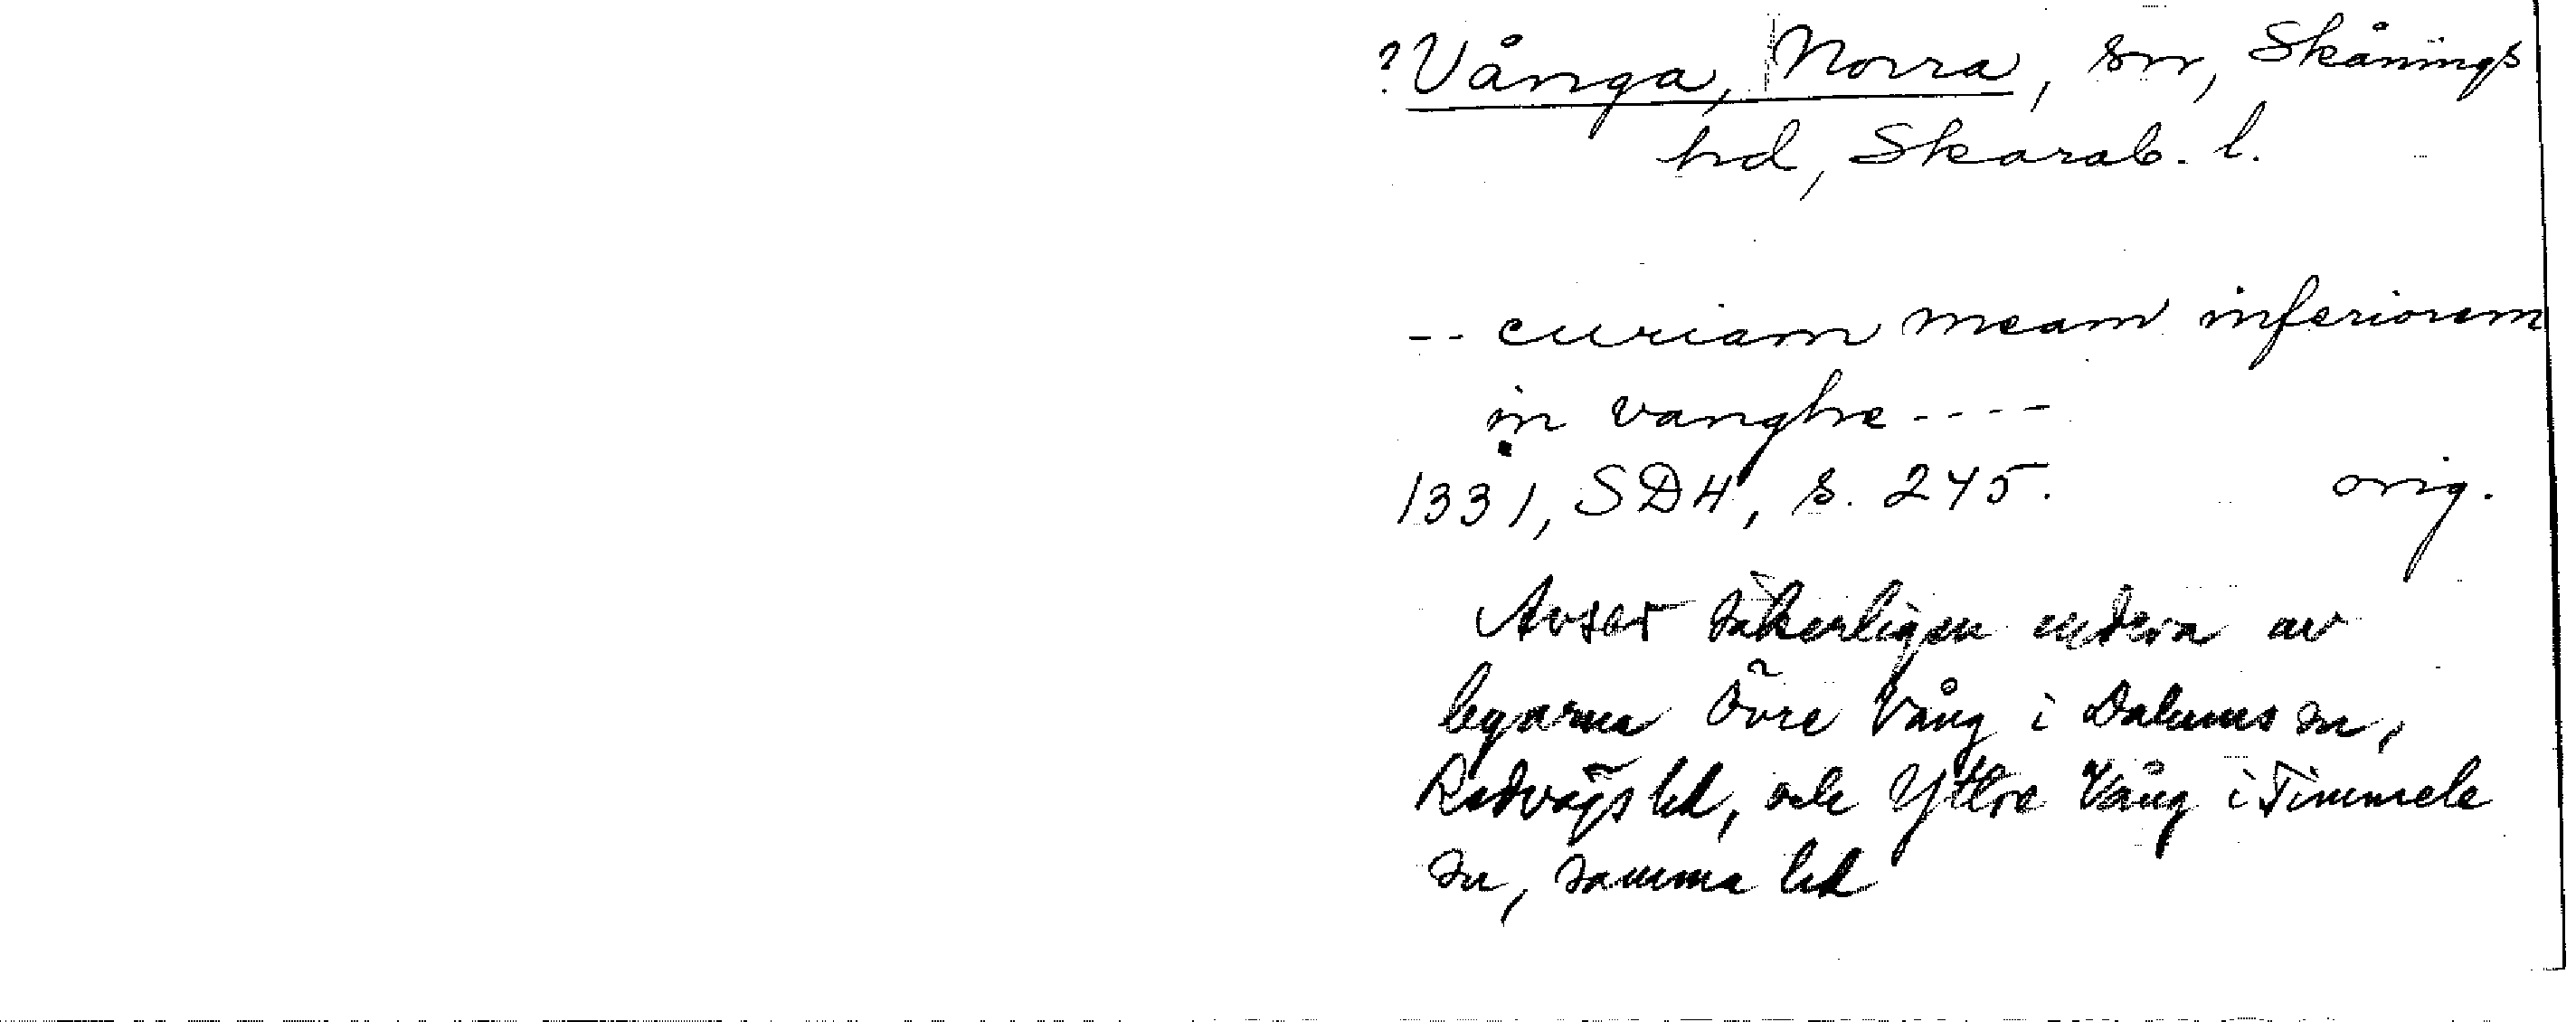 ? Vånga, Norra, sn, Skånings
hd, Skarab. l.
-- curiam meam inferiorem
in vanghe ----
1331, SD 4, s. 245. orig.
Avser säkerligen endera av
byarna Övre Vång i Dalums sn,
Redvägs hd, och Yttre Vång i Timmele
sn, samma hd